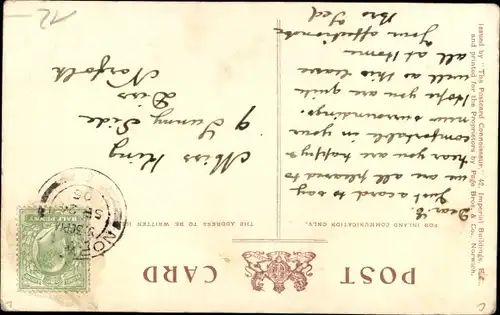 POST CARD
FOR INLAND COMMUNICATION ONLY.
THE ADDRESS TO BE WRITTEN
Issued by "The Postcard Connoisseur" 42, Imperial Buildings, E.C.,
and printed for the Proprietors by Page Bros. & Co., Norwich.
Dear E
Just a card to say
we are all pleased to
hear you are happy &
comfortable in your
new surroundings.
Hope you are quite
well as this leaves
all at Home
Your affectionate
Bro Ted
Miss King
9 Sunny Side
Diss
Norfolk
HALF PENNY
NOR
SP 24
06
12